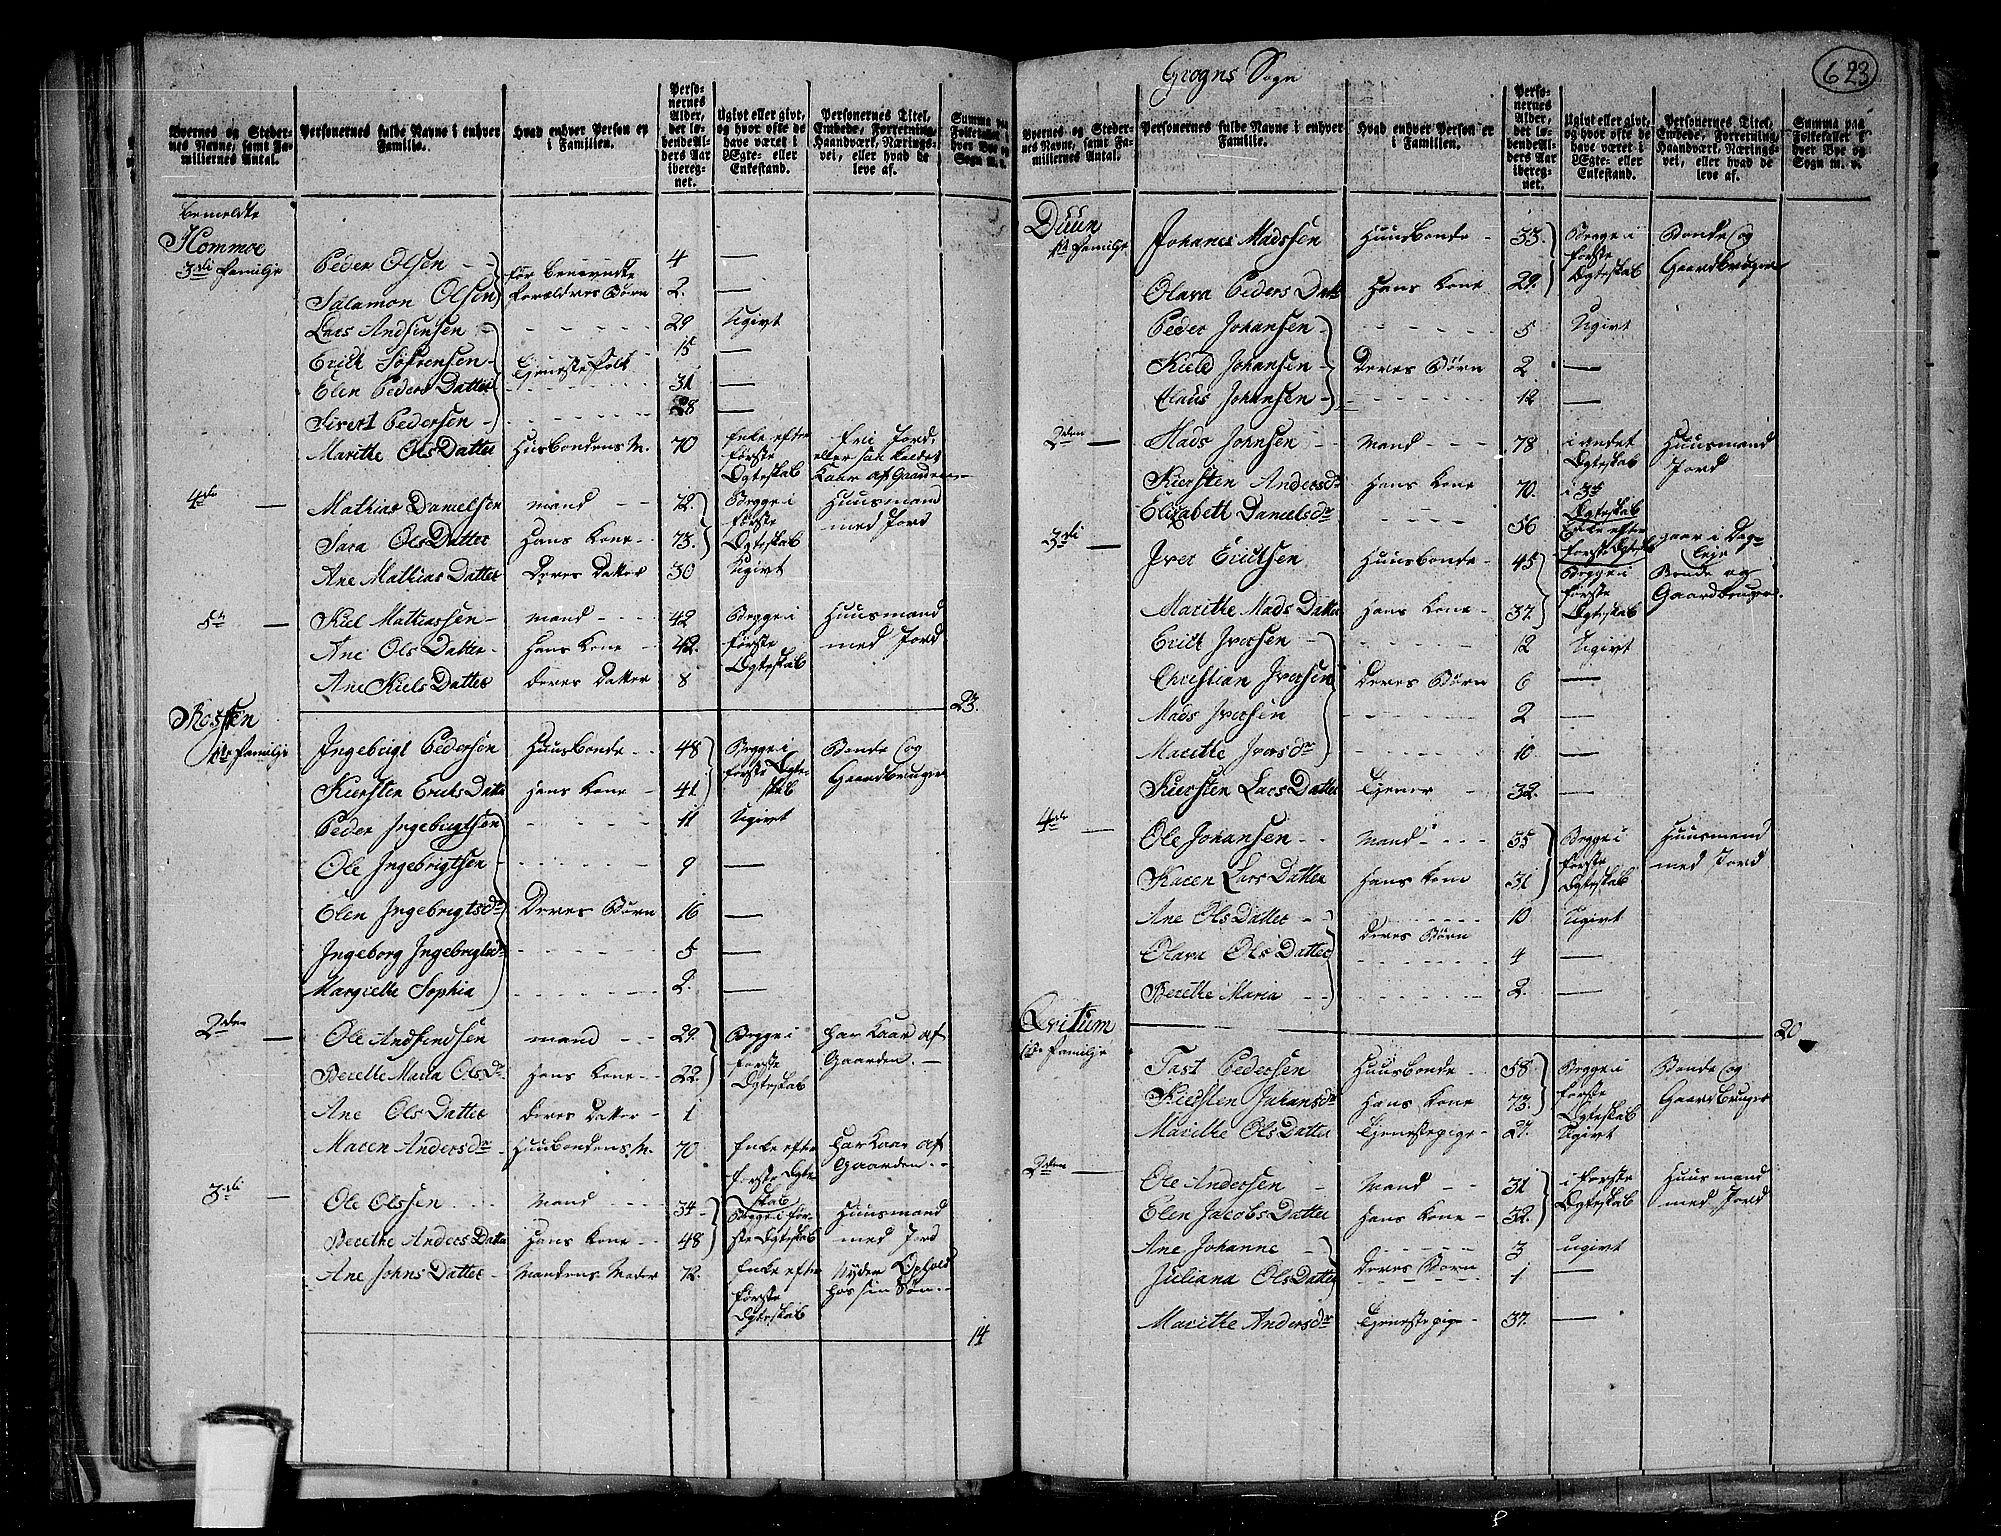 623
Grogns Sogn
Byernes og Stedernes Navne, samt Familiernes Antal.
Personernes fulde Navne i enhver Familie.
Hvad enhver Person er i Familien.
Personernes Alder, det løbende Alders Aar iberegnet.
Ugivt eller givt, og hvor ofte de have været i Ægte- eller Enkestand.
Personernes Titel, Embede, Forretning, Haandværk, Næringsvei, eller hvad de leve af.
Summa paa Folketallet i hver Bye og Sogn m. v.
bemeldte
Hommoe
3die familje
Peder Olsen 4 —
før benevndte
Salamon Olsen forældres Børn 2. —
Lars Andsensen 29 Ugivt
Erich Søfrensen 15 —
Tjenestefolk
Elen Peders Datter 31 —
Sivert Pedersen 28 —
Marithe Ols Datter Husbondens M. 70 Enke efter første Ægteskab
4de — Mathias Danielsen mand 72. Begge i første Ægteskab Huusmand med Jord
Sara Ols Datter Hans Kone 73.
Ane Mathias Datter Deres Datter 30 Ugivt
5te — Kiel Mathiassen mand 42 Begge i første Ægteskab Huusmand med Jord
Ane Ols Datter Hans Kone 42.
Ane Kiels Datter deres Datter 8
23.
Rossen
1te familje Ingebrigt Pedersen Huusbonde 48 Begge i første Ægteskab Bonde og Gaardbruger
Kiersten Eriks Datter Hans Kone 41.
Peder Ingebrigtsen 11 Ugivt
Ole Ingebrigtsen 9 —
Elen Ingebrigtsdr Deres Børn 16 —
Ingeborg Ingebrigtsdr 5 —
Margrethe Sophia 2. —
2den — Ole Andsendsen mand 29. Begge i første Ægteskab Har Kaar af Gaarden.
Berethe Maria Olsdr Hans Kone 22.
Ane Ols Datter deres Datter 1
Maren Andersdr Huusbondens M. 70 Enke efter første Ægteskab Har Kaar af Gaarden
3die — Ole Olssen Mand 34 Begge i første Ægteskab Huusmand med Jord
Berethe Anders Datter Hans Kone 48
Ane Johns Datter Mandens Moder 72. Enke efter første Ægteskab Nyder Ophold hos sin Søn.
14
Byernes og Stedernes Navne, samt Familiernes Antal.
Personernes fulde Navne i enhver Familie.
Hvad enhver Person er i Familien.
Personernes Alder, det løbende Alders Aar iberegnet.
Ugivt eller givt, og hvor ofte de have været i Ægte- eller Enkestand.
Personernes Titel, Embede, Forretning, Haandværk, Næringsvei, eller hvad de leve af.
Summa paa Folketallet i hver Bye og Sogn m. v.
Duun
1te familje Johanes Madssen Huusbonde 33. Begge i første Ægteskab Bonde og Gaardbruger
Olava Peders Datter Hans Kone 29.
Peder Johansen 5 Ugivt
Kield Johansen Deres Børn 2 —
Claus Johansen 12 —
2den — Mads Johnsen Mand 78 i andet Ægteskab Huusmand Jord
Kiersten Andersdr Hans Kone 70. i 3die Ægteskab
Elizabeth Danielsdr 56 Enke efter første Ægtesk.
3die — Iver Erichsen Huusbonde 45 Begge i første Ægteskab Bonde og Gaardbruger
Marithe Mads Datter Hans Kone 37.
Erich Iversen 12 Ugivt
Christian Iversen Deres Børn 6 —
Mads Iversen 2 —
Marethe Iversdr 10 —
Kiersten Lars Datter Tjener 32. —
4de — Ole Johansen Mand 35 Begge i første Ægteskab Huusmand med Jord
Karen Lars Datter Hans Kone 31
Ane Ols Datter 10 Ugivt
deres Børn
Olava Ols Datter 4 —
Berethe Maria 2. —
20
Qvitum
1te familje
Tast Pedersen Huusbonde 58 Begge i første Ægteskab Bonde og Gaardbruger
Kiersten Johansdr Hans Kone 73.
Marithe Ols Datter Tjenestepige 27. Ugivt
2den — Ole Andersen Mand 31 i første Ægteskab Huusmand med Jord
Elen Jacobs Datter Hans Kone 32.
Ane Johanne 3 ugivt
deres Børn
Juliana Ols Datter 1 —
Marithe Andersdr Tjenestepige 37. —